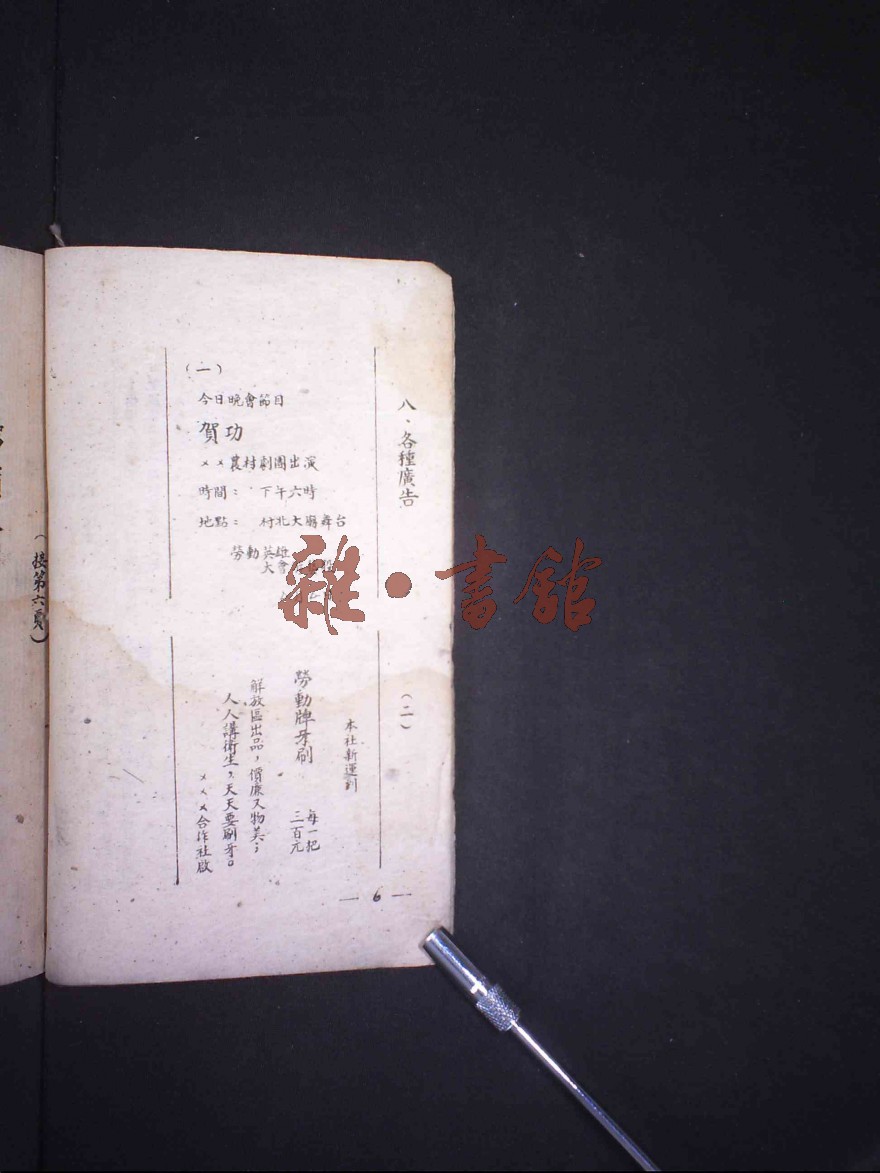 八、各種廣告
(一)
今日晚會節目
賀功
××農村劇團出演
時間： 下午六時
地點： 村北大廟舞台
勞動英雄
大會
(二)
本社新運到
勞動牌牙刷
每一把
三百元
解放區出品，價廉又物美；
人人講衛生，天天要刷牙。
×××合作社啟
— 6 —
(接第六頁)
雜·書館